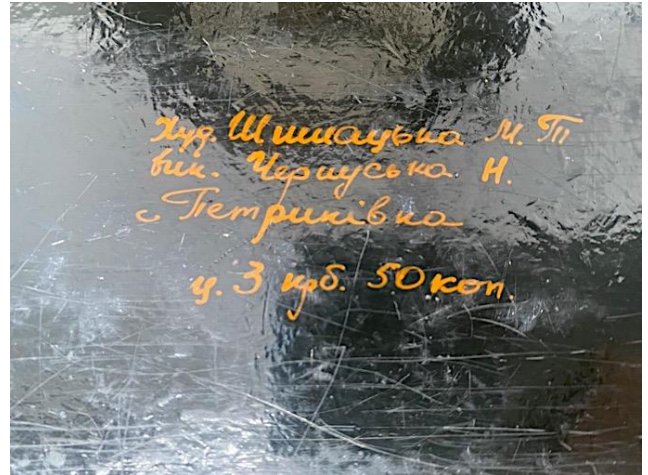 Худ. Шишацька М. П
вик. Чернуська Н.
с Петриківка
ц. 3 крб. 50 коп.